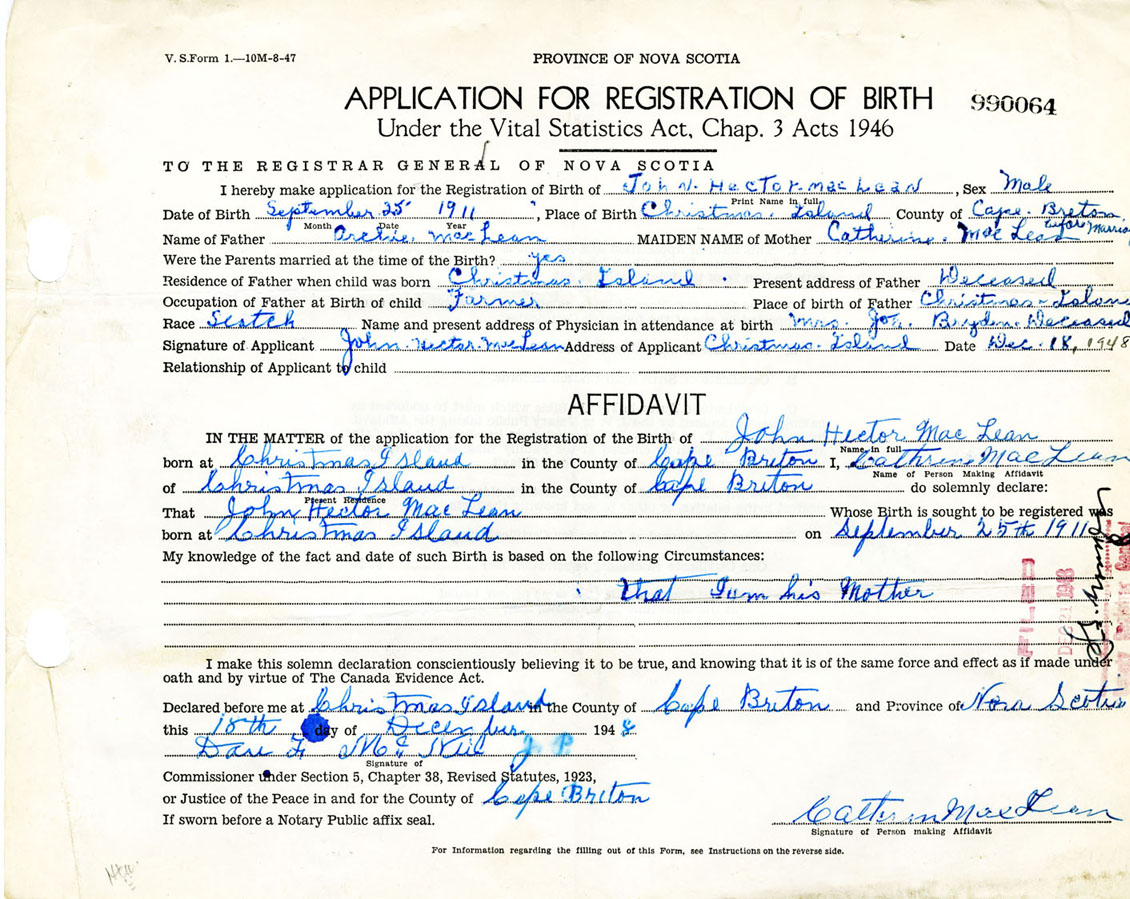 V. S. Form 1.—10M-8-47
PROVINCE OF NOVA SCOTIA
APPLICATION FOR REGISTRATION OF BIRTH
990064
Under the Vital Statistics Act, Chap. 3 Acts 1946
TO THE REGISTRAR GENERAL OF NOVA SCOTIA
I hereby make application for the Registration of Birth of John. Hector. Mac Lean, Sex Male
Print Name in full
Date of Birth September 25 1911, Place of Birth Christmas. Island County of Cape. Breton
Month Date Year
Name of Father Archie. MacLean MAIDEN NAME of Mother Catherine. Mac Lean before Marriag
Were the Parents married at the time of the Birth? yes
Residence of Father when child was born Christmas. Island. Present address of Father Deceased
Occupation of Father at Birth of child Farmer Place of birth of Father Christmas. Islan
Race Scotch Name and present address of Physician in attendance at birth Mrs. Joh. Deceased
Signature of Applicant John. Hector. MacLean Address of Applicant Christmas. Island Date Dec. 18, 1948
Relationship of Applicant to child
AFFIDAVIT
IN THE MATTER of the application for the Registration of the Birth of John Hector Mac Lean
Name in full
born at Christmas Island in the County of Cape Briton I, Cathrine Mac Lean
Name of Person Making Affidavit
of Christmas Island in the County of Cape Briton do solemnly declare:
Present Residence
That John Hector Mac Lean Whose Birth is sought to be registered was
born at Christmas Island on September 25th 1911
My knowledge of the fact and date of such Birth is based on the following Circumstances:
that I am his Mother
FILED
I make this solemn declaration conscientiously believing it to be true, and knowing that it is of the same force and effect as if made under
oath and by virtue of The Canada Evidence Act.
Declared before me at Christmas Island in the County of Cape Briton and Province of Nova Scotia
this 18th day of December 1948
Dan F. McNeil J P
Signature of
Commissioner under Section 5, Chapter 38, Revised Statutes, 1923,
or Justice of the Peace in and for the County of Cape Briton
If sworn before a Notary Public affix seal.
Cathrin Mac Lean
Signature of Person making Affidavit
For Information regarding the filling out of this Form, see Instructions on the reverse side.